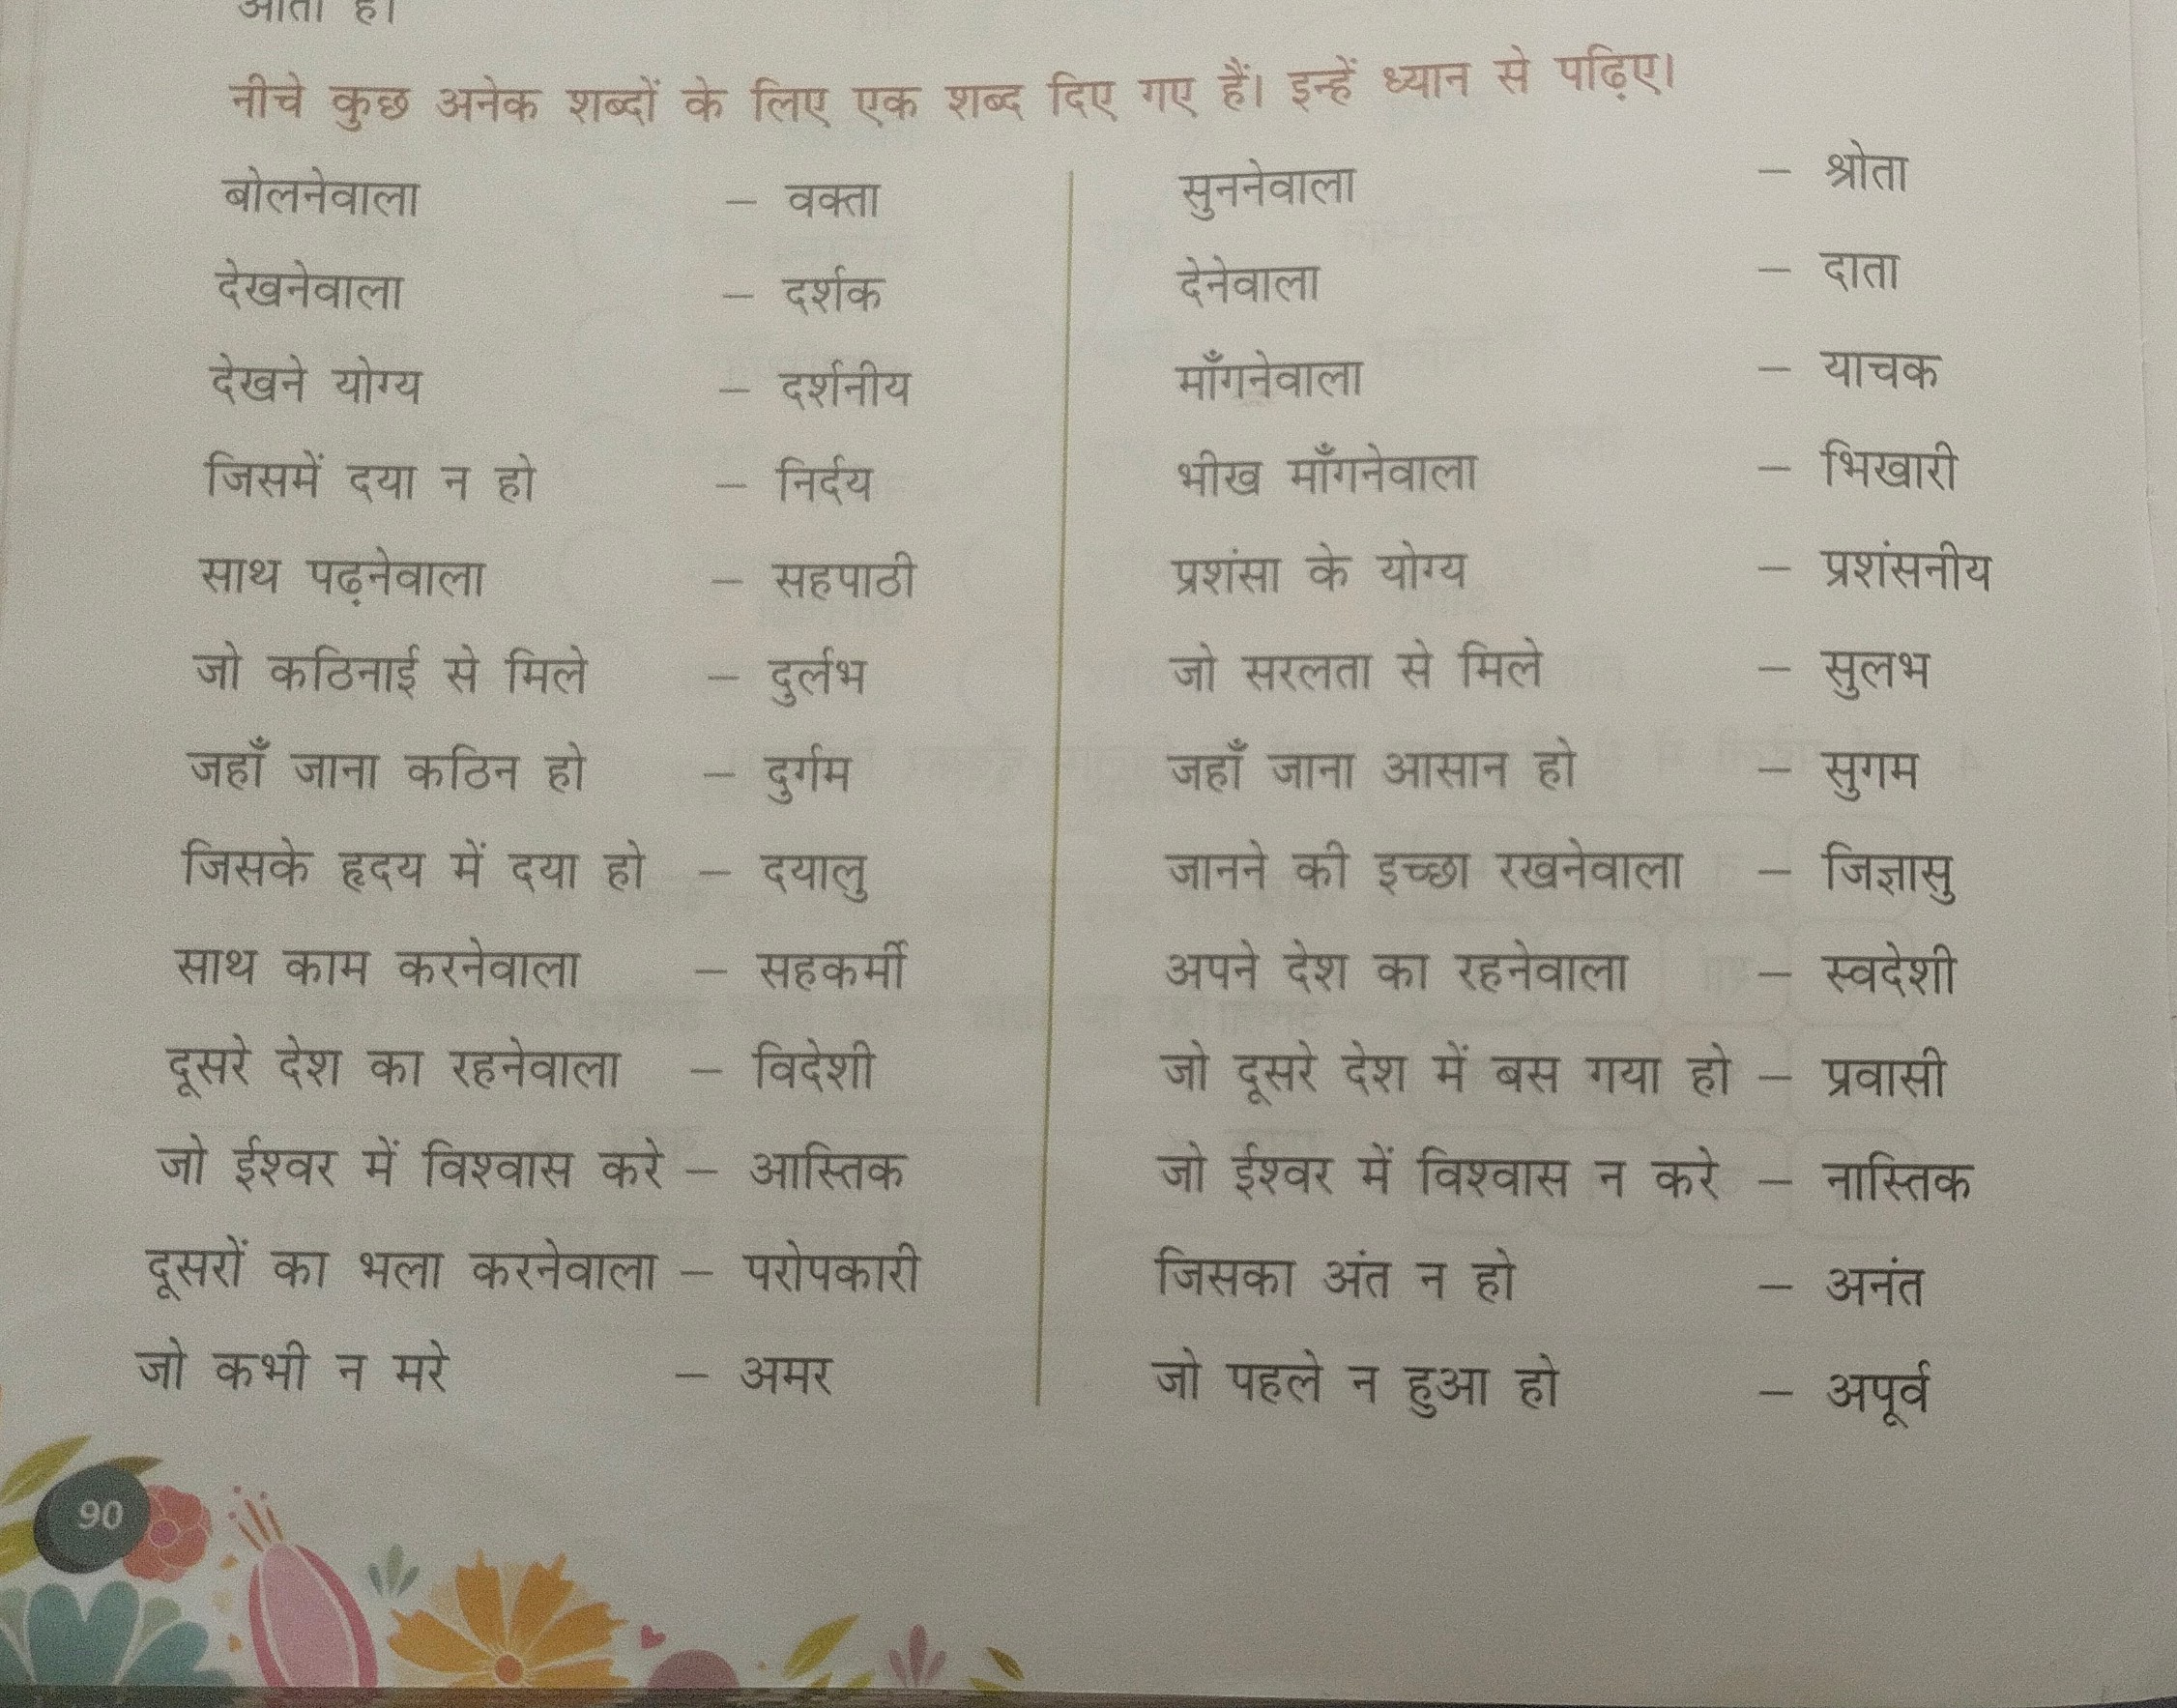 आता है।
नीचे कुछ अनेक शब्दों के लिए एक शब्द दिए गए हैं। इन्हें ध्यान से पढ़िए।
बोलनेवाला – वक्ता
देखनेवाला – दर्शक
देखने योग्य – दर्शनीय
जिसमें दया न हो – निर्दय
साथ पढ़नेवाला – सहपाठी
जो कठिनाई से मिले – दुर्लभ
जहाँ जाना कठिन हो – दुर्गम
जिसके हृदय में दया हो – दयालु
साथ काम करनेवाला – सहकर्मी
दूसरे देश का रहनेवाला – विदेशी
जो ईश्वर में विश्वास करे – आस्तिक
दूसरों का भला करनेवाला – परोपकारी
जो कभी न मरे – अमर
सुननेवाला – श्रोता
देनेवाला – दाता
माँगनेवाला – याचक
भीख माँगनेवाला – भिखारी
प्रशंसा के योग्य – प्रशंसनीय
जो सरलता से मिले – सुलभ
जहाँ जाना आसान हो – सुगम
जानने की इच्छा रखनेवाला – जिज्ञासु
अपने देश का रहनेवाला – स्वदेशी
जो दूसरे देश में बस गया हो – प्रवासी
जो ईश्वर में विश्वास न करे – नास्तिक
जिसका अंत न हो – अनंत
जो पहले न हुआ हो – अपूर्व
90